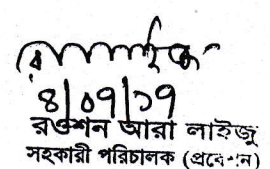 ৪|০৭|১৭
রওশন আরা লাইজু
সহকারী পরিচালক (প্রবেশন)